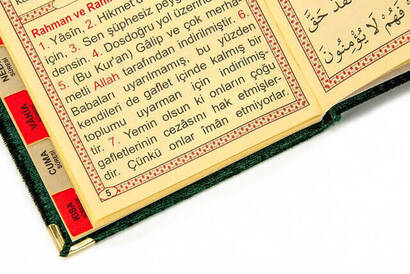 Rahman ve Rah
1. Yâsîn, 2. Hikmet d
için, 3. Sen şüphesiz peyg
densin. 4. Dosdoğru yol üzerin
5. (Bu Kur'an) Gâlip ve çok merha
metli Allah tarafından indirilmiştir. 6.
Babaları uyarılmamış, bu yüzden
kendileri de gaflet içinde kalmış bir
toplumu uyarman için indirilmiş-
tir. 7. Yemin olsun ki onların çoğu
gafletlerinin cezasını hak etmişler-
dir. Çünkü onlar îmân etmiyorlar.
5
فَهُمْ لَا يُؤْمِنُونَ
VÂKIA
CUMA
KISA